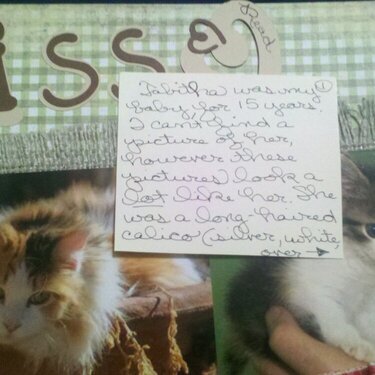 iss
Read
Tabitha was my ①
baby for 15 years.
I can't find a
picture of her,
however these
pictures look a
lot like her. She
was a long-haired
calico (silver, white,
over →